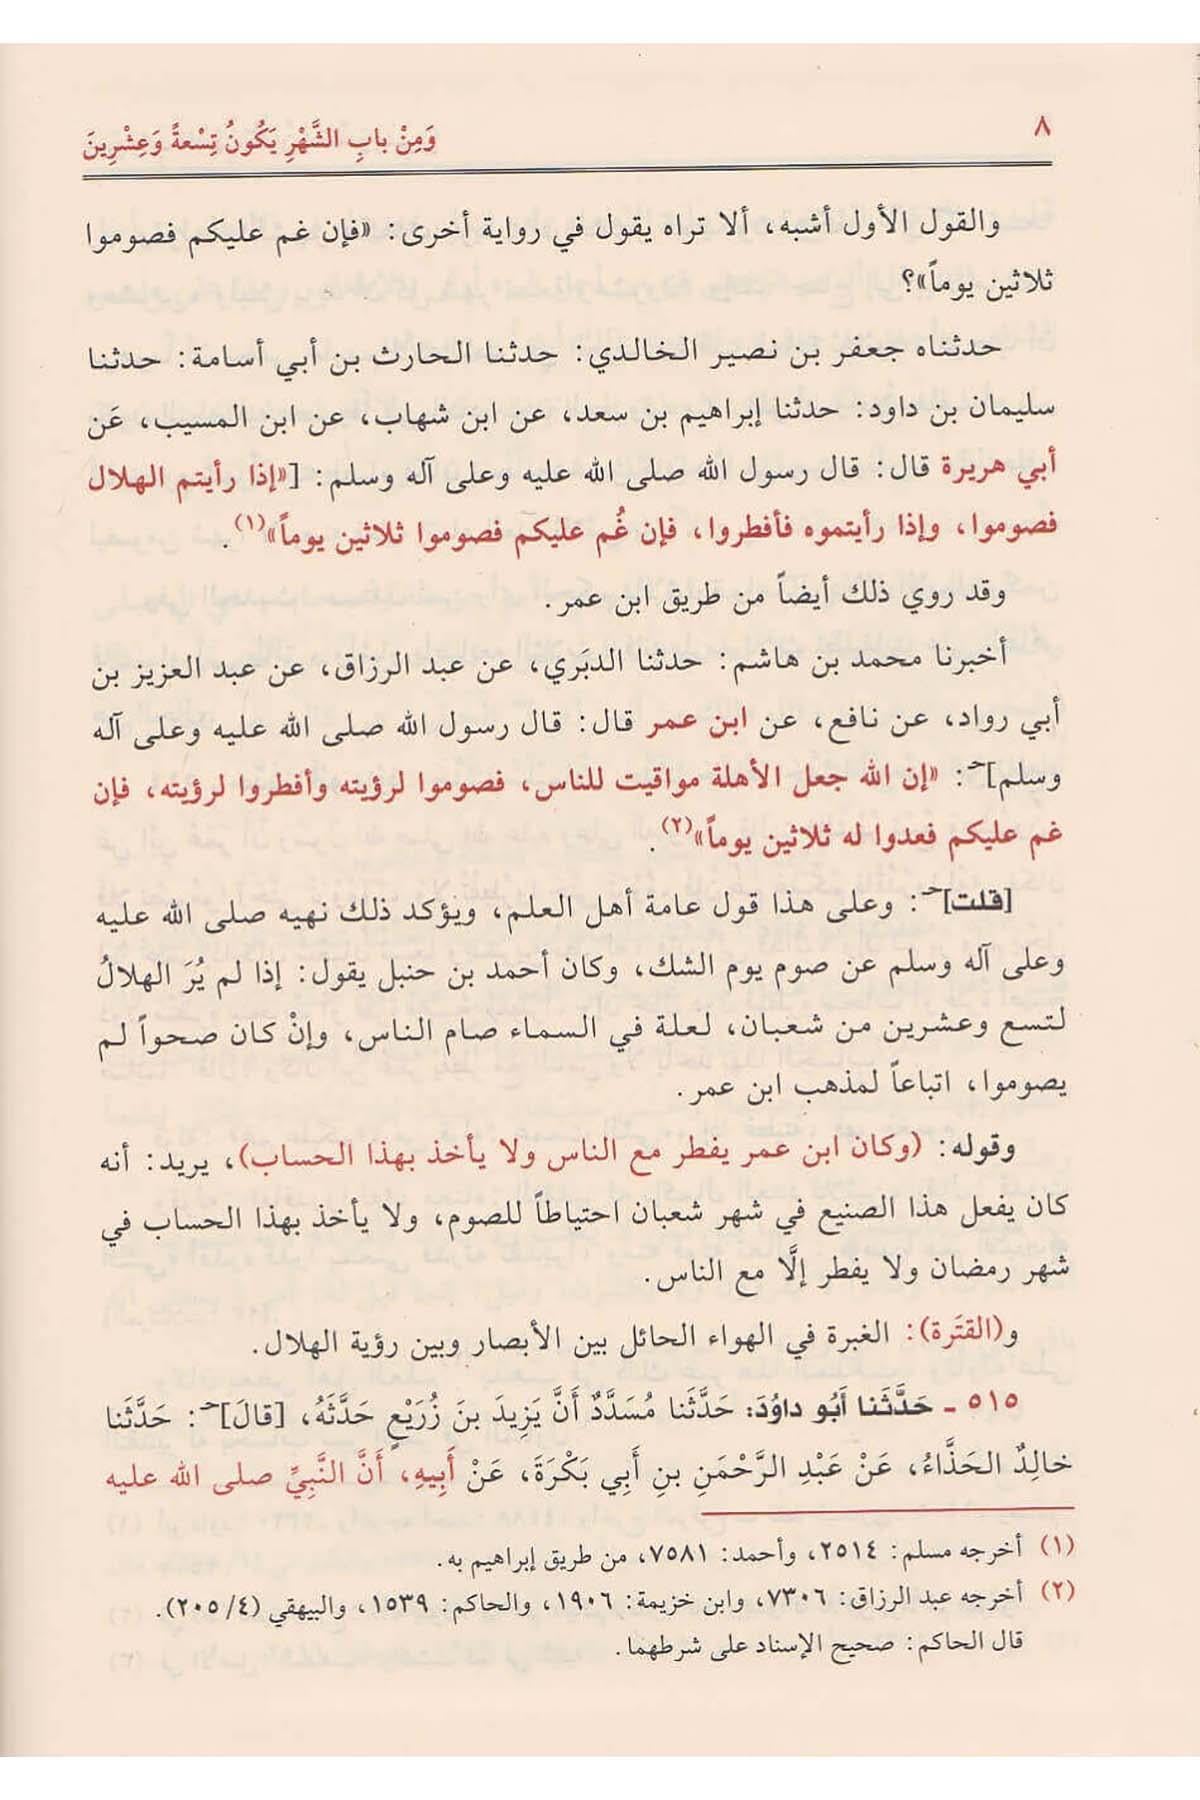 ٨
وَمِنْ بابِ الشَّهْرِ يَكُونُ تِسْعةً وَعِشْرِينَ
والقول الأول أشبه، ألا تراه يقول في رواية أخرى: «فإن غم عليكم فصوموا
ثلاثين يوماً»؟
حدثناه جعفر بن نصير الخالدي: حدثنا الحارث بن أبي أسامة: حدثنا
سليمان بن داود: حدثنا إبراهيم بن سعد، عن ابن شهاب، عن ابن المسيب، عَن
أبي هريرة قال: قال رسول الله صلى الله عليه وعلى آله وسلم: [«إذا رأيتم الهلال
فصوموا، وإذا رأيتموه فأفطروا، فإن غُم عليكم فصوموا ثلاثين يوماً»(١).
وقد روي ذلك أيضاً من طريق ابن عمر.
أخبرنا محمد بن هاشم: حدثنا الدبَري، عن عبد الرزاق، عن عبد العزيز بن
أبي رواد، عن نافع، عن ابن عمر قال: قال رسول الله صلى الله عليه وعلى آله
وسلم]حـ: «إن الله جعل الأهلة مواقيت للناس، فصوموا لرؤيته وأفطروا لرؤيته، فإن
غم عليكم فعدوا له ثلاثين يوماً»(٢).
[قلت]حـ: وعلى هذا قول عامة أهل العلم، ويؤكد ذلك نهيه صلى الله عليه
وعلى آله وسلم عن صوم يوم الشك، وكان أحمد بن حنبل يقول: إذا لم يُرَ الهلالُ
لتسع وعشرين من شعبان، لعلة في السماء صام الناس، وإنْ كان صحواً لم
يصوموا، اتباعاً لمذهب ابن عمر.
وقوله: (وكان ابن عمر يفطر مع الناس ولا يأخذ بهذا الحساب)، يريد: أنه
كان يفعل هذا الصنيع في شهر شعبان احتياطاً للصوم، ولا يأخذ بهذا الحساب في
شهر رمضان ولا يفطر إلَّا مع الناس.
و(القتَرة): الغبرة في الهواء الحائل بين الأبصار وبين رؤية الهلال.
٥١٥ ـ حَدَّثَنا أَبُو داوُدَ: حَدَّثَنا مُسَدَّدٌ أَنَّ يَزِيدَ بنَ زُرَيْعٍ حَدَّثَهُ، [قالَ]حـ: حَدَّثَنا
خالِدٌ الحَذَّاءُ، عَنْ عَبْدِ الرَّحْمَنِ بنِ أَبِي بَكْرَةَ، عَنْ أَبِيهِ، أَنَّ النَّبِيَّ صلى الله عليه
(١) أخرجه مسلم: ٢٥١٤، وأحمد: ٧٥٨١، من طريق إبراهيم به.
(٢) أخرجه عبد الرزاق: ٧٣٠٦، وابن خزيمة: ١٩٠٦، والحاكم: ١٥٣٩، والبيهقي (٢٠٥/٤).
قال الحاكم: صحيح الإسناد على شرطهما.